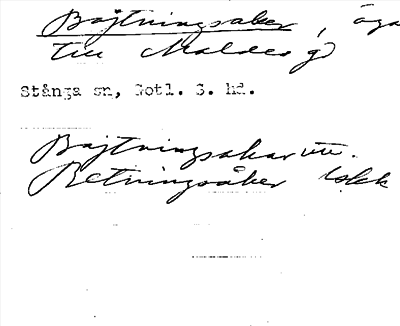 Bajtningsaker, äga
till Maldes g)
Stånga sn, Gotl. S. hd.
Bajtningsakar utt.
Betningsåker Iskk